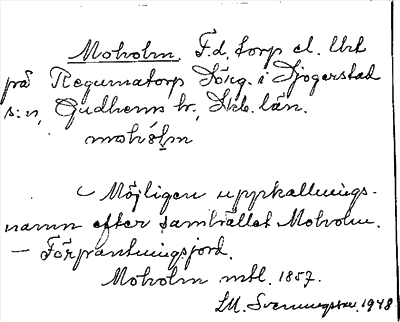 Moholm. F.d. torp el. lht
på Regumatorp Sörg. i Sjogerstad
s:n, Gudhems hr, Skb. län.
mohólm
— Möjligen uppkallnings-
namn efter samhället Moholm.
— Förpantningsjord.
Moholm mtl. 1857.
LM. Svenungsson. 1948